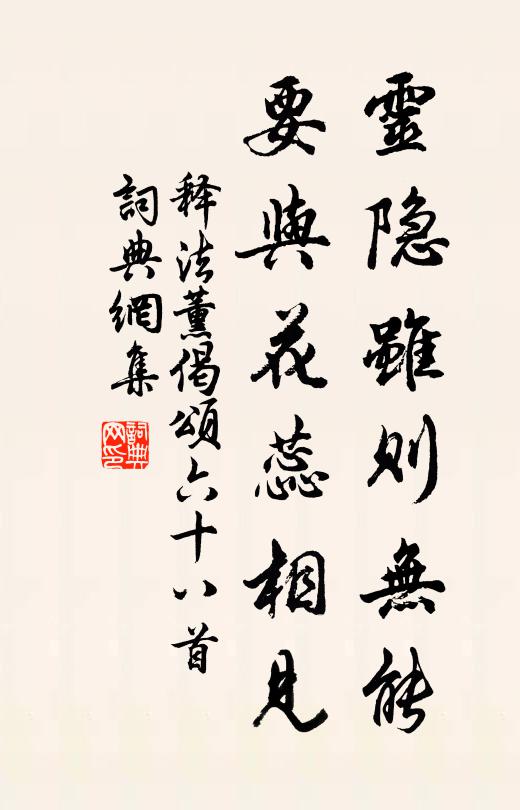 靈隐雖則無能
要與花蕊相見
释法薰偈頌六十八首
詞典網集
詞典網印